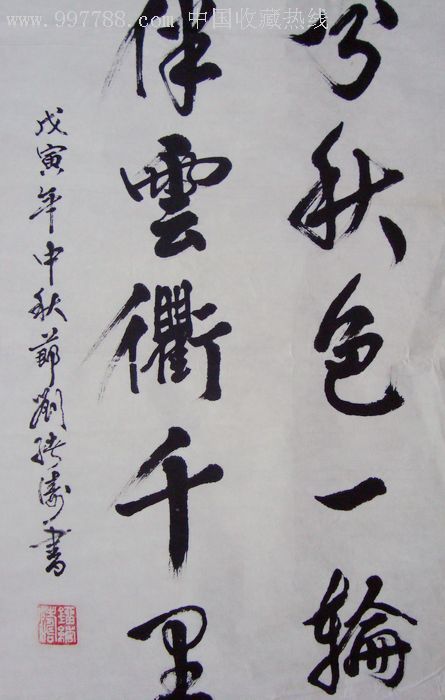 www.997788.com 中国收藏热线
分秋色一輪
伴雲衢千里
戊寅年中秋節劉濤書